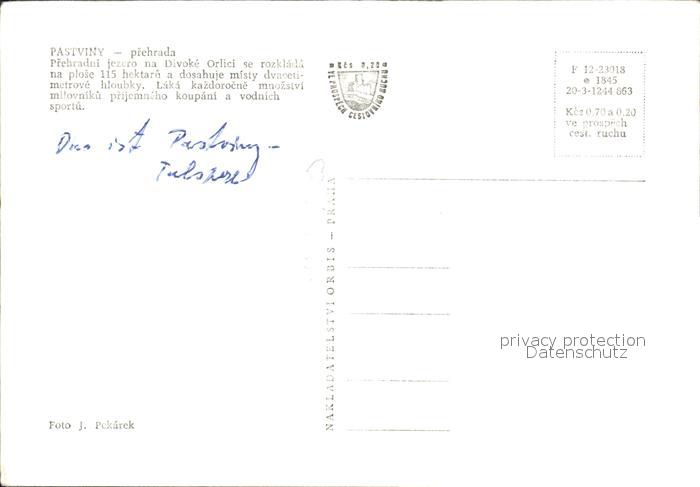 PASTVINY — přehrada
Přehradní jezero na Divoké Orlici se rozkládá
na ploše 115 hektarů a dosahuje místy dvaceti-
metrové hloubky. Láká každoročně množství
milovníků příjemného koupání a vodních
sportů.
Das ist Pastviny -
Talsperre
Kčs 0,20
VE PROSPĚCH CESTOVNÍHO RUCHU
F 12-23018
1845
20-3-1244 863
Kčs 0,70 a 0,20
ve prospěch
cest. ruchu
NAKLADATELSTVÍ ORBIS — PRAHA
privacy protection
Datenschutz
Foto J. Pekárek